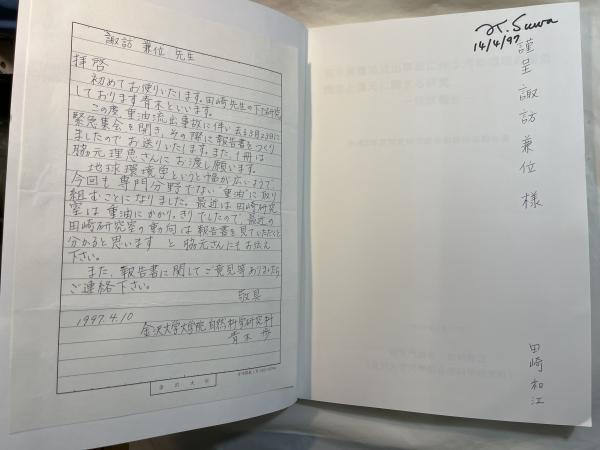 諏訪 兼位 先生
拝啓
初めてお便りいたします。田崎先生の下で研究
しております青木といいます。
この度、重油流出事故に伴い去る3月23日に
緊急集会を開き、その際に報告書をつくり
ましたのでお送りいたします。また、1冊は
脇元理恵さんにお渡し願います。
地球環境学というと幅が広いようで、
今回も専門分野でない"重油"に取り
組むことになりました。最近は田崎研究
室は重油にかかりっきりでしたので、最近の
田崎研究室の動向は報告書を見ていただくと
分かると思います と脇元さんにもお伝え
下さい。
また、報告書に関してご意見等ありましたら
ご連絡下さい。
敬具
1997.4.10
金沢大学大学院 自然科学研究科
青木 歩
金沢大学
K. Suwa
14/4/97
謹呈 諏訪兼位 様
田崎 和江